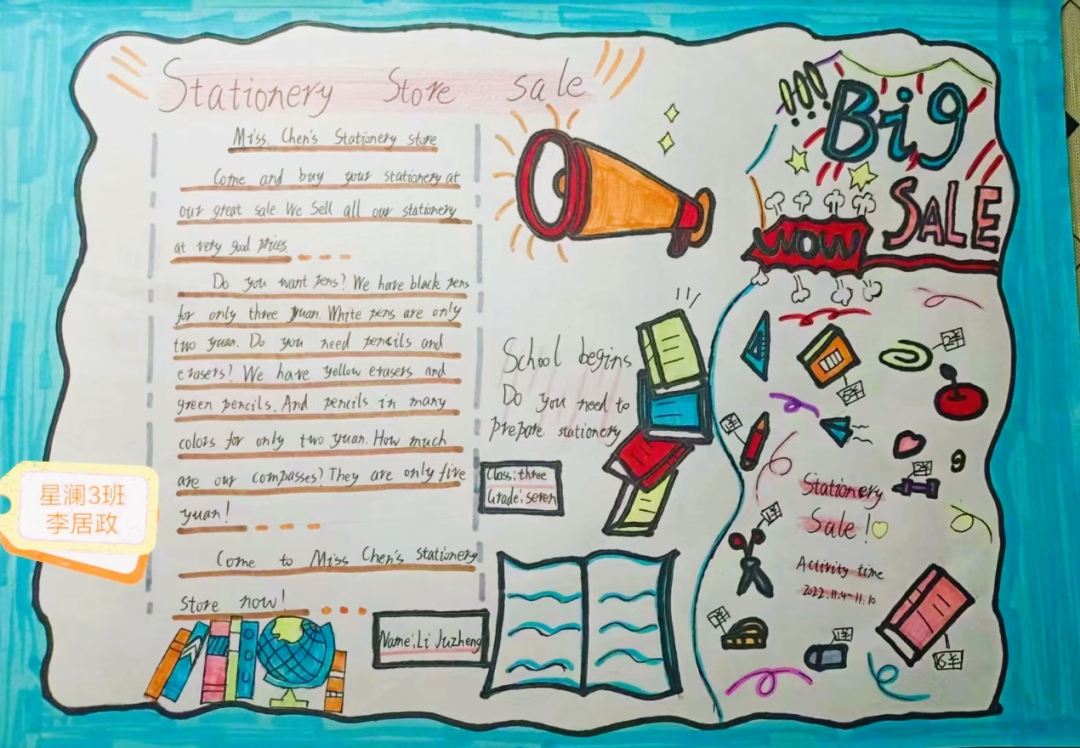 Stationery Store sale
Miss Chen's Stationery store
Come and buy your stationery at
our great sale. We Sell all our stationery
at very good prices
Do you want pens? We have black pens
for only three yuan. White pens are only
two yuan. Do you need pencils and
erasers? We have yellow erasers and
green pencils. And pencils in many
colors for only two yuan. How much
are our compasses? They are only five
yuan!
Come to Miss Chen's stationery
store now!
Name: Li Juzheng
School begins
Do you need to
prepare stationery
Class: three
Grade: seven
!!!
Big
SALE
WOW
Stationery
Sale!
Activity time
2022.11.4-11.10
星澜3班
李居政